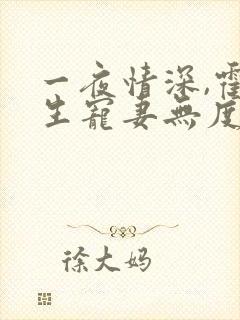 一夜情深,霍
生寵妻無度
徐大妈